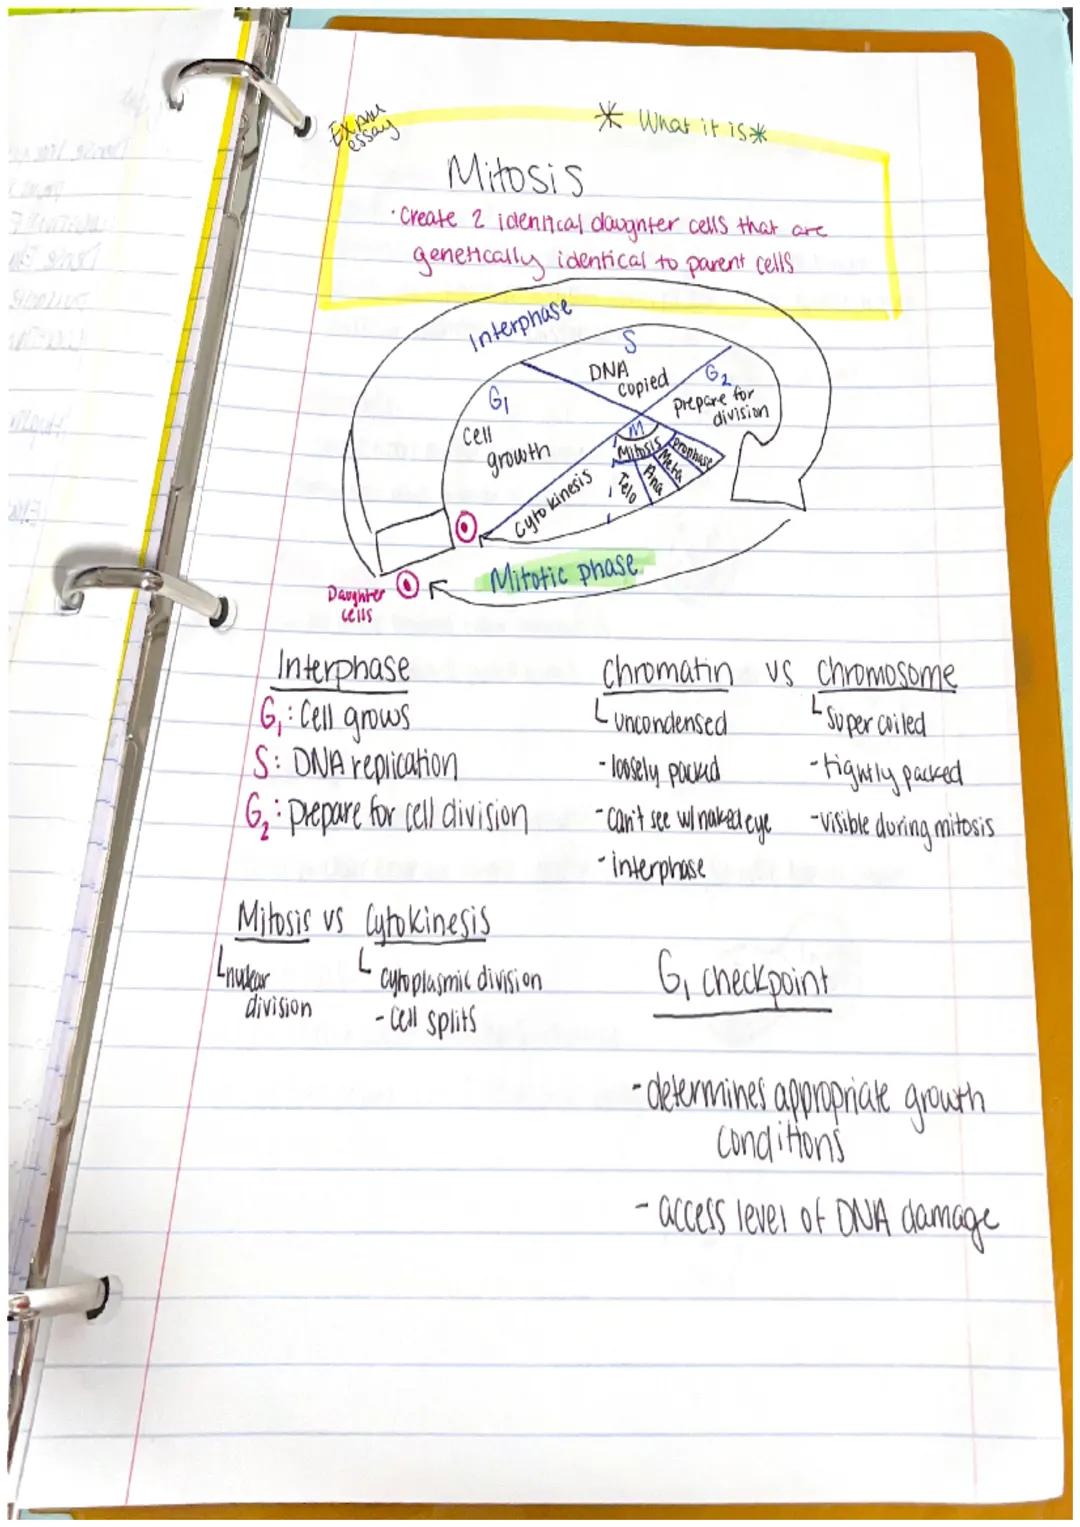 EXAM
essay
* What it is *
Mitosis
· Create 2 identical daughter cells that are
genetically identical to parent cells
Interphase
S
DNA
copied
G2
prepare for
division
G1
Cell
growth
M
Mitosis
prophase
Meta
Ana
Telo
Cytokinesis
Mitotic phase
Daughter
cells
Interphase
G1: Cell grows
S: DNA replication
G2: prepare for cell division
Chromatin vs Chromosome
uncondensed
- loosely packed
- can't see w/ naked eye
- interphase
super coiled
- tightly packed
- visible during mitosis
Mitosis vs Cytokinesis
nuclear
division
cytoplasmic division
- Cell splits
G1 checkpoint
- determines appropriate growth
conditions
- access level of DNA damage